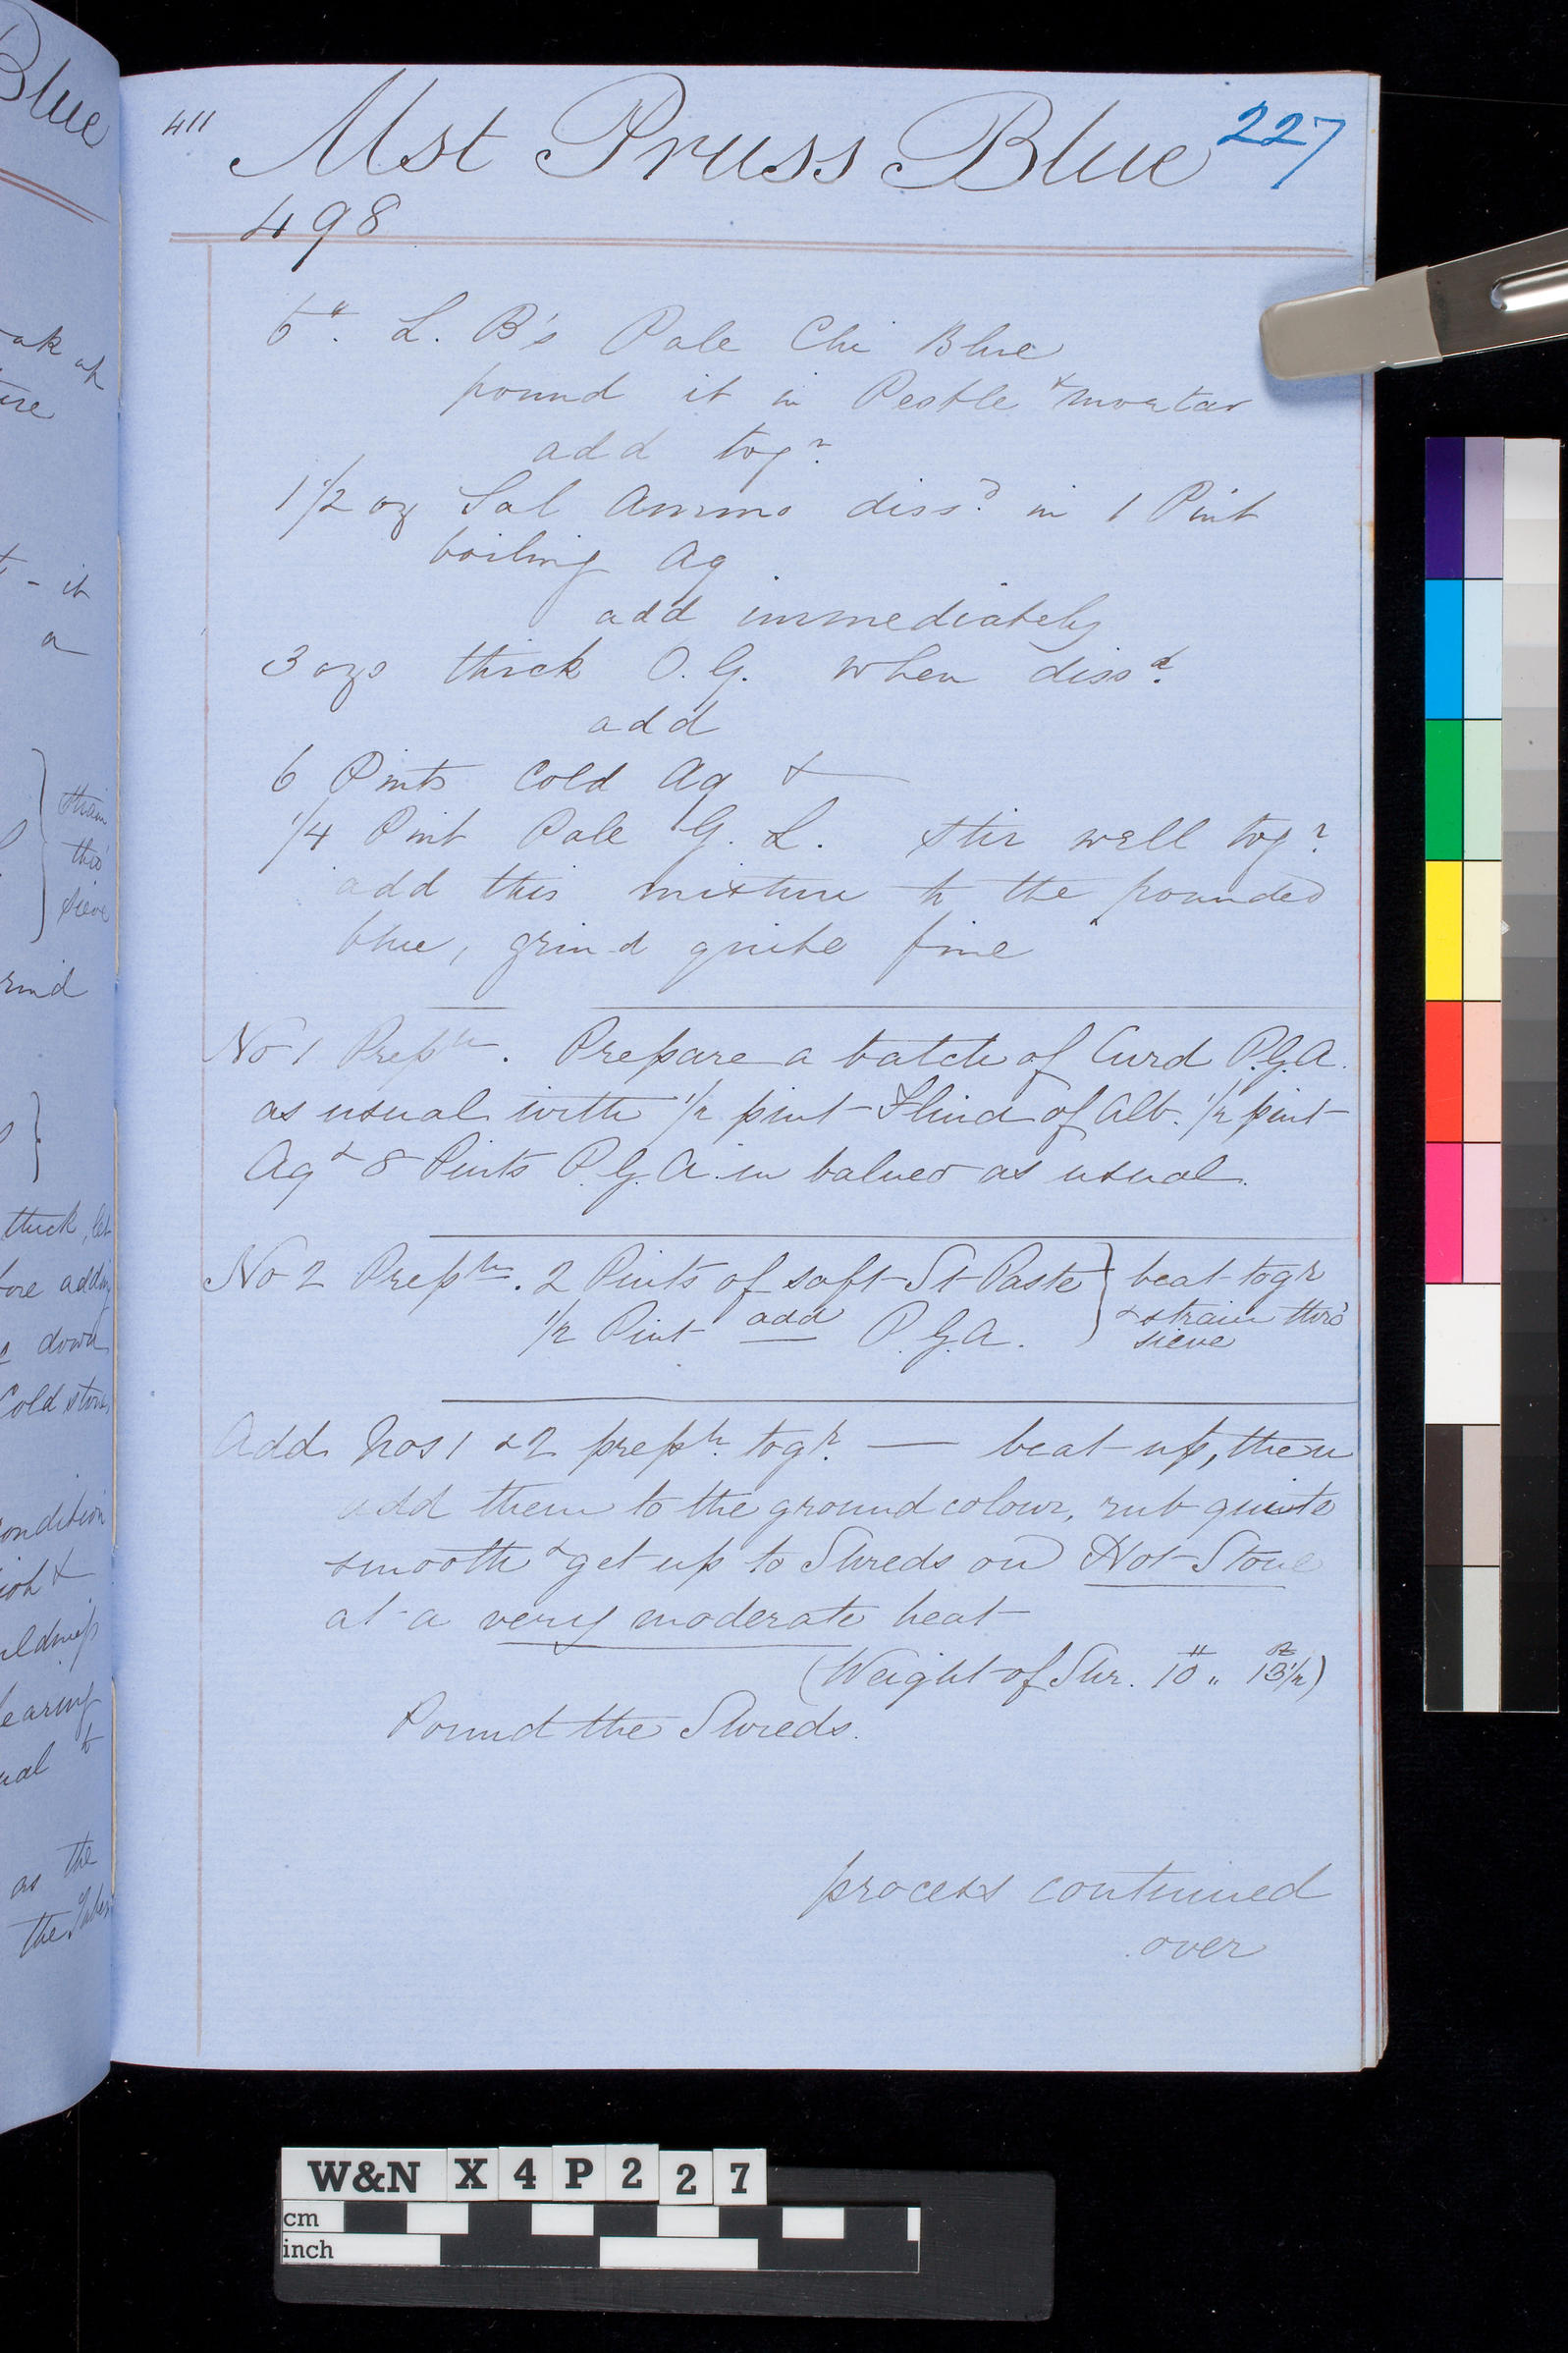 Blue
ak
ere
t - it
a
strain
thro'
sieve
rind
thick, let
fore adding
down
Cold stove
condition
&
earing
ual to
as the
the
411 Mst Pruss Blue 227
498
6lb. L. B's Pale Chi Blue
pound it in Pestle & mortar
add togr.
1 1/2 oz Sal Ammo dissd. in 1 Pint
boiling Aq
add immediately
3 ozs thick O. G. when dissd.
add
6 Pints Cold Aq &
1/4 Pint Pale G. L. Stir well togr.
add this mixture to the pounded
blue, grind quite fine
No 1 Preptn. Prepare a batch of Curd P.G.A.
as usual with 1/2 pint Fluid of Alb. 1/2 pint
Aq & 8 Pints P.G.A. in balneo as usual.
No 2 Preptn. 2 Pints of soft St Paste } beat togr
1/2 Pint add P.G.A. & strain thro'
sieve
Add Nos 1 & 2 preptn. togr. — beat up, then
add them to the ground colour, rub quite
smooth & get up to Shreds on Hot Stone
at a very moderate heat
(Weight of Shr. 10 " 13 1/2)
Pound the Shreds.
process continued
over
W&N X4P227
cm
inch